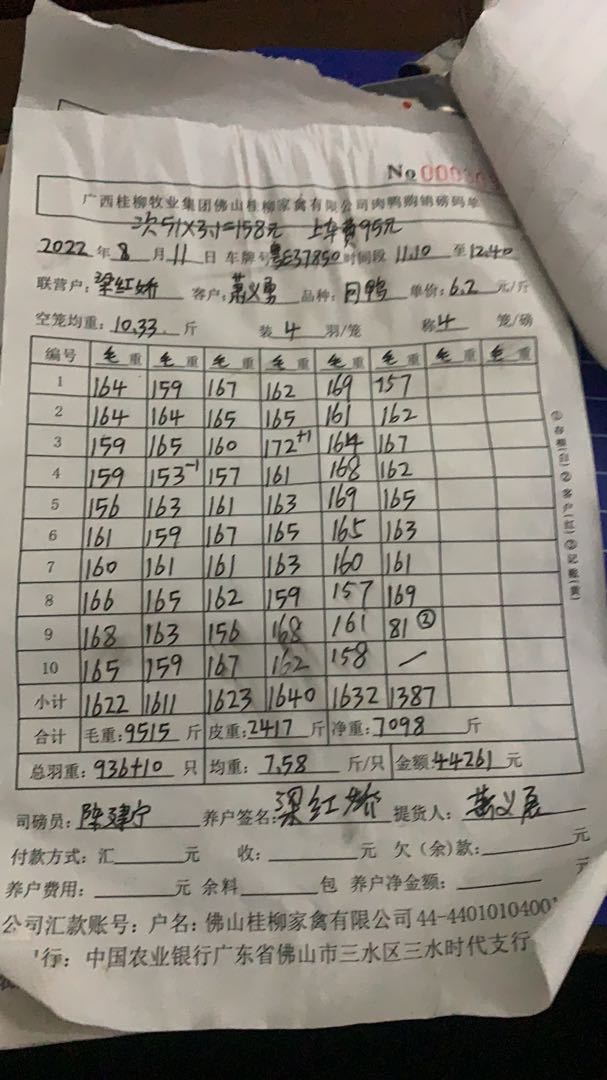 No 000
广西桂柳牧业集团佛山桂柳家禽有限公司肉鸭购销磅码单
次51X3.1=158元 上车费95元
2022年8月11日 车牌号粤E37850时间段 11.10 至12.40
联营户:梁红娇 客户:萧义勇 品种: 单价:6.2元/斤
空笼均重:10.33斤 装4羽/笼 称4笼/磅
编号 毛重 毛重 毛重 毛重 毛重 毛重 毛重 毛重
1 164 159 167 162 169 157
2 164 164 165 165 161 162
3 159 165 160 172+1 164 167
4 159 153-1 157 161 168 162
5 156 163 161 163 169 165
6 161 159 167 165 165 163
7 160 161 161 163 160 161
8 166 165 162 159 157 169
9 168 163 156 168 161 81②
10 165 159 167 162 158 —
小计 1622 1611 1623 1640 1632 1387
合计 毛重:9515斤 皮重:2417斤 净重:7098斤
总羽重:936+10只 均重:7.58斤/只 金额:44261元
司磅员:陈建宁 养户签名:梁红娇 提货人:萧义
付款方式:汇 元 收: 元 欠(余)款: 元
养户费用: 元 余料 包 养户净金额: 元
公司汇款账号:户名:佛山桂柳家禽有限公司44-44010104001
行:中国农业银行广东省佛山市三水区三水时代支行
①存根(白)②客户(红)③记账(黄)